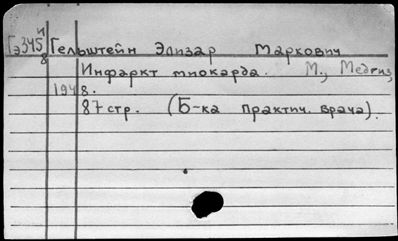 Гэ345 и/8 Гельштейн Элизар Маркович
Инфаркт миокарда. М., Медгиз,
1948.
87 стр. (Б-ка практич. врача).